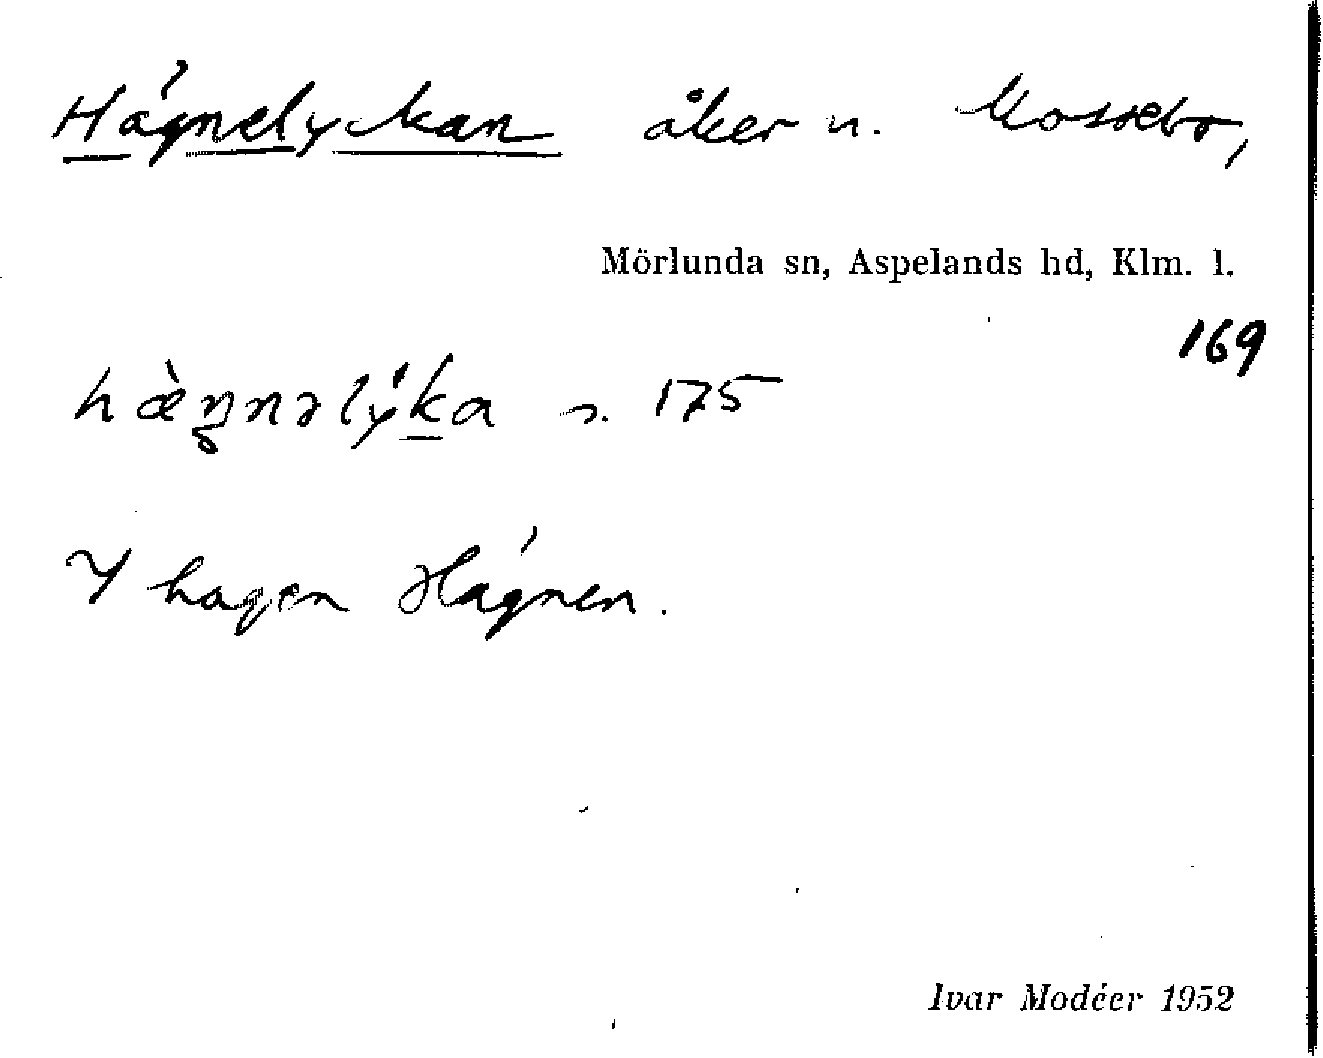 Hágnelyckan åker n. Mossebo,
Mörlunda sn, Aspelands hd, Klm. l.
169
hæ̀ŋnəlýka s. 175
I hagen Hágnen.
Ivar Modéer 1952